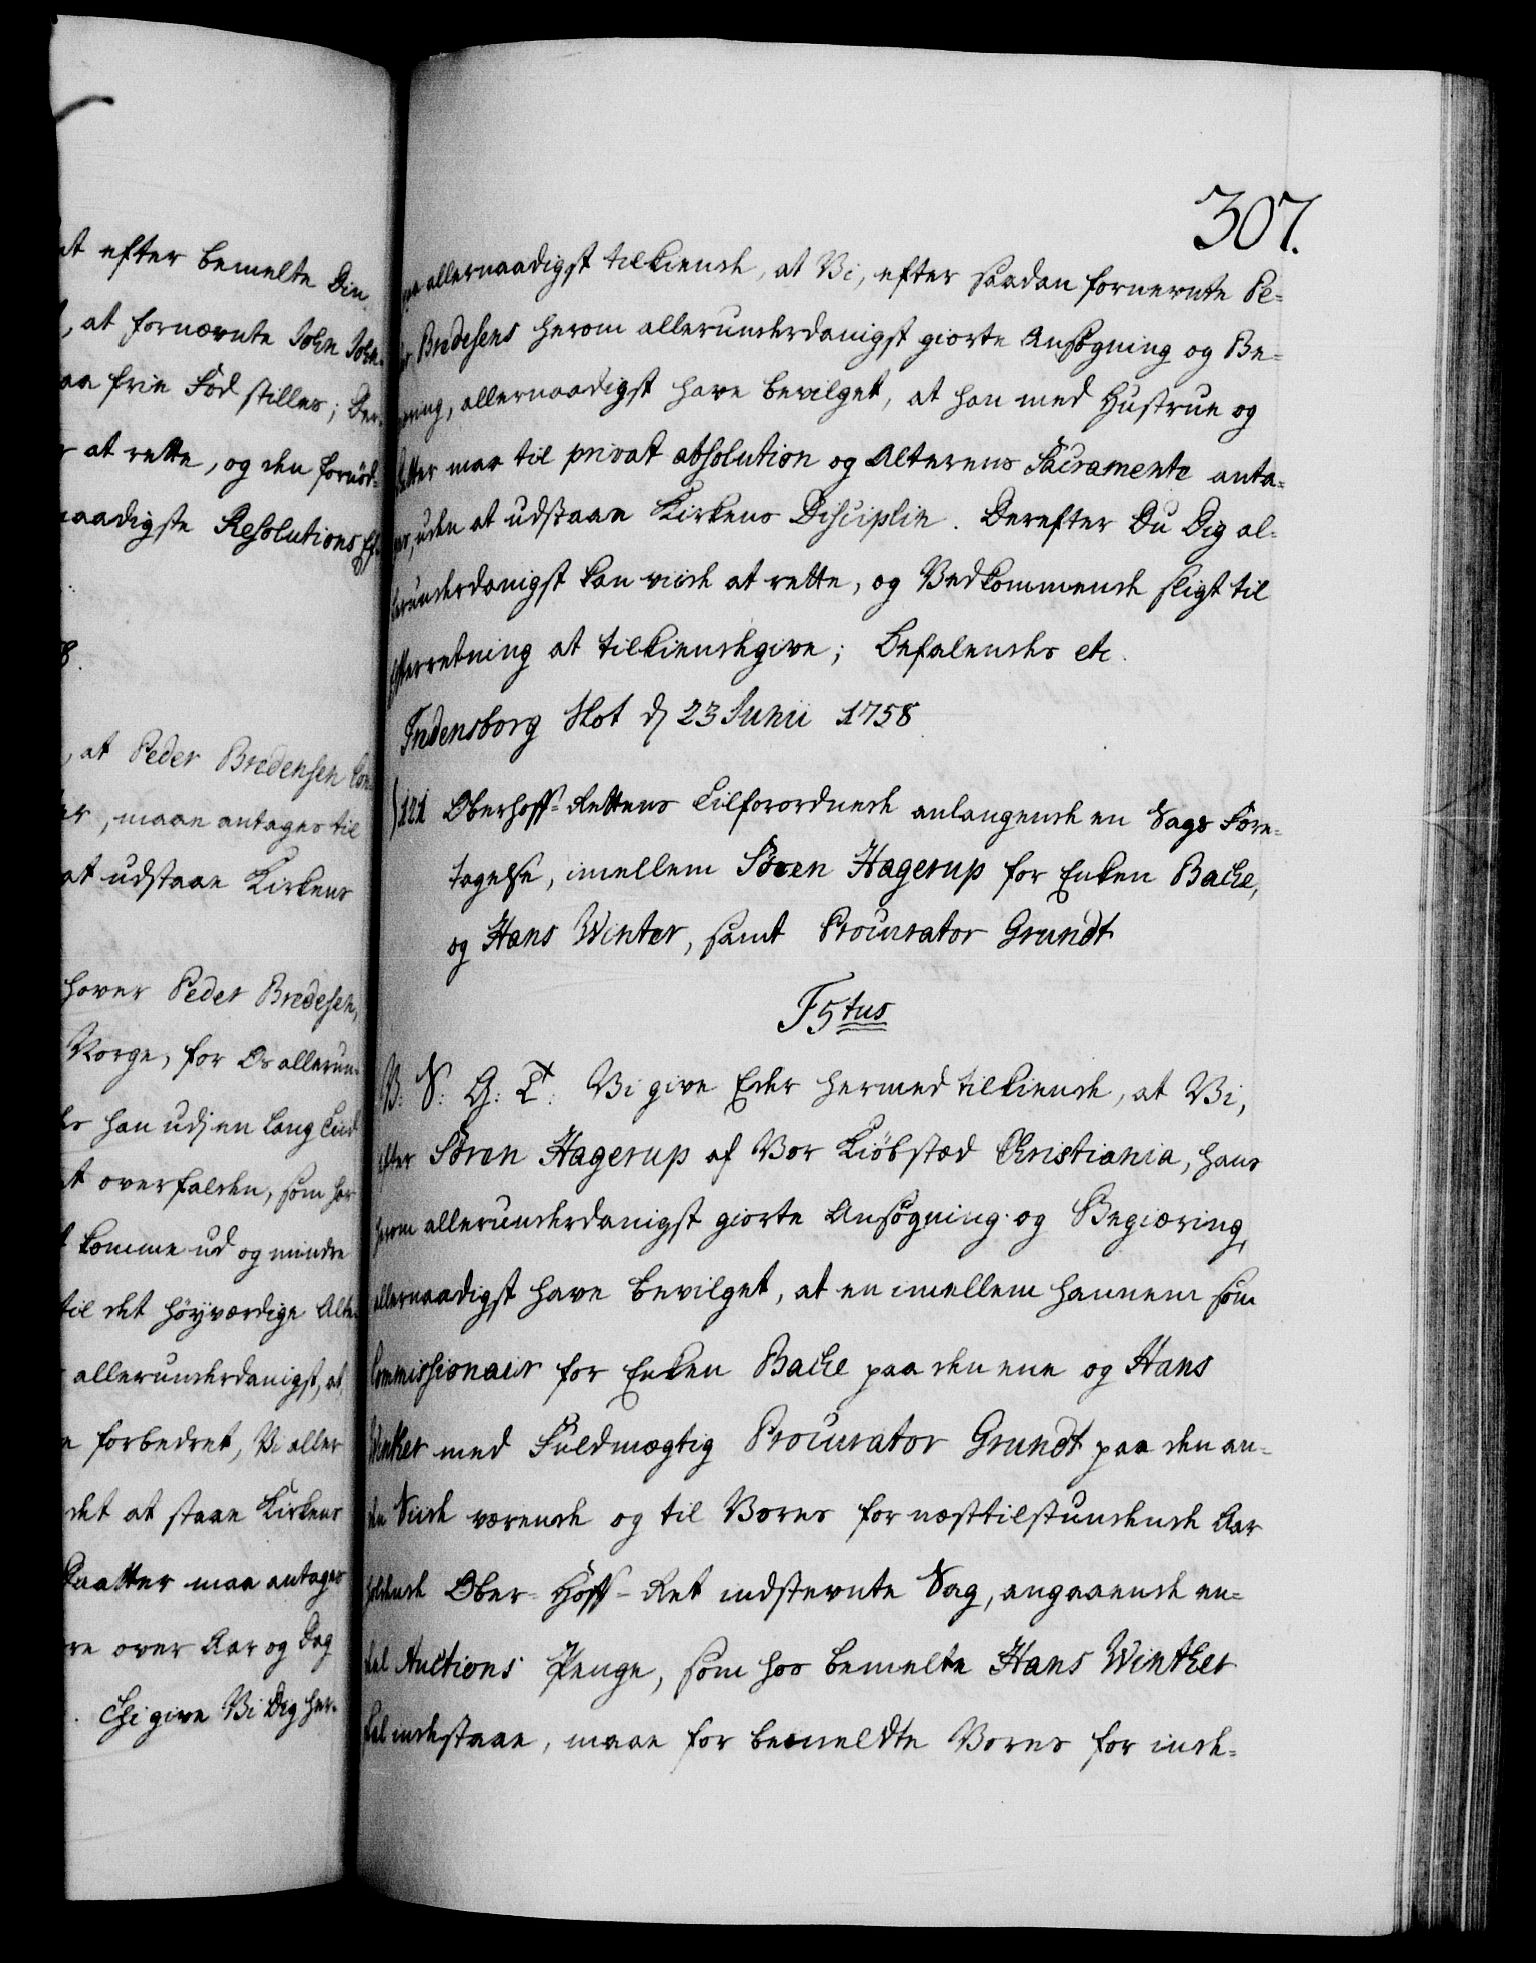 at efter bemelte Din
, at fornævnte John John-
aa frie Fod stilles; Der-
at rette, og den fornød-
naadigste Resolutions
8.
, at Peder Bredensen
, maae antages til
at udstaae Kirkens
haver Peder Bredesen,
Norge, for Os allerun-
han udj en lang Tiid
overfalden, som har
komme ud og mindre
til det höyværdige Alte-
allerunderdanigst, at
forbedret, Vi aller
det at staae Kirkens
Daatter maa antages
over Aar og Dag
Thi give Vi Dig her-
307.
allernaadigst tilkiende, at Vi, efter saadan fornevnte Pe-
Bredesens herom allerunderdanigst giorte Ansøgning og Be-
allernaadigst have bevilget, at han med Hustrue og
maa til privat absolution og Alterens Sacramente anta-
uden at udstaae Kirkens Disciplin. Derefter Du Dig al-
lerunderdanigst kan viide at rette, og Vedkommende sligt til
Efterretning at tilkiendegive; Befalendes etc.
Fredensborg Slot d 23 Junii 1758
121 Oberhoff-Rettens Tilforordnede anlangende en Sags Fore-
tagelse, imellem Søren Hagerup for Enken Bache,
og Hans Winter, samt Procurator Grundt
F5tus
V: S: G: T: Vi give Eder hermed tilkiende, at Vi,
efter Søren Hagerup af Vor Kiöbstæd Christiania, hans
herom allerunderdanigst giorte Ansögning og Begiæring,
allernaadigst have bevilget, at en imellem hannem som
Commissionair for Enken Bache paa den ene og Hans
Winther med Fuldmægtig Procurator Grundt paa den an-
den Siide værende og til Vores for næsttilstundende Aar
holdende Ober-Höff-Ret indstevnte Sag, angaaende en-
deel Auctions Penge, som hos bemelte Hans Winther
skal indestaae, maae for bemeldte Vores for inde-